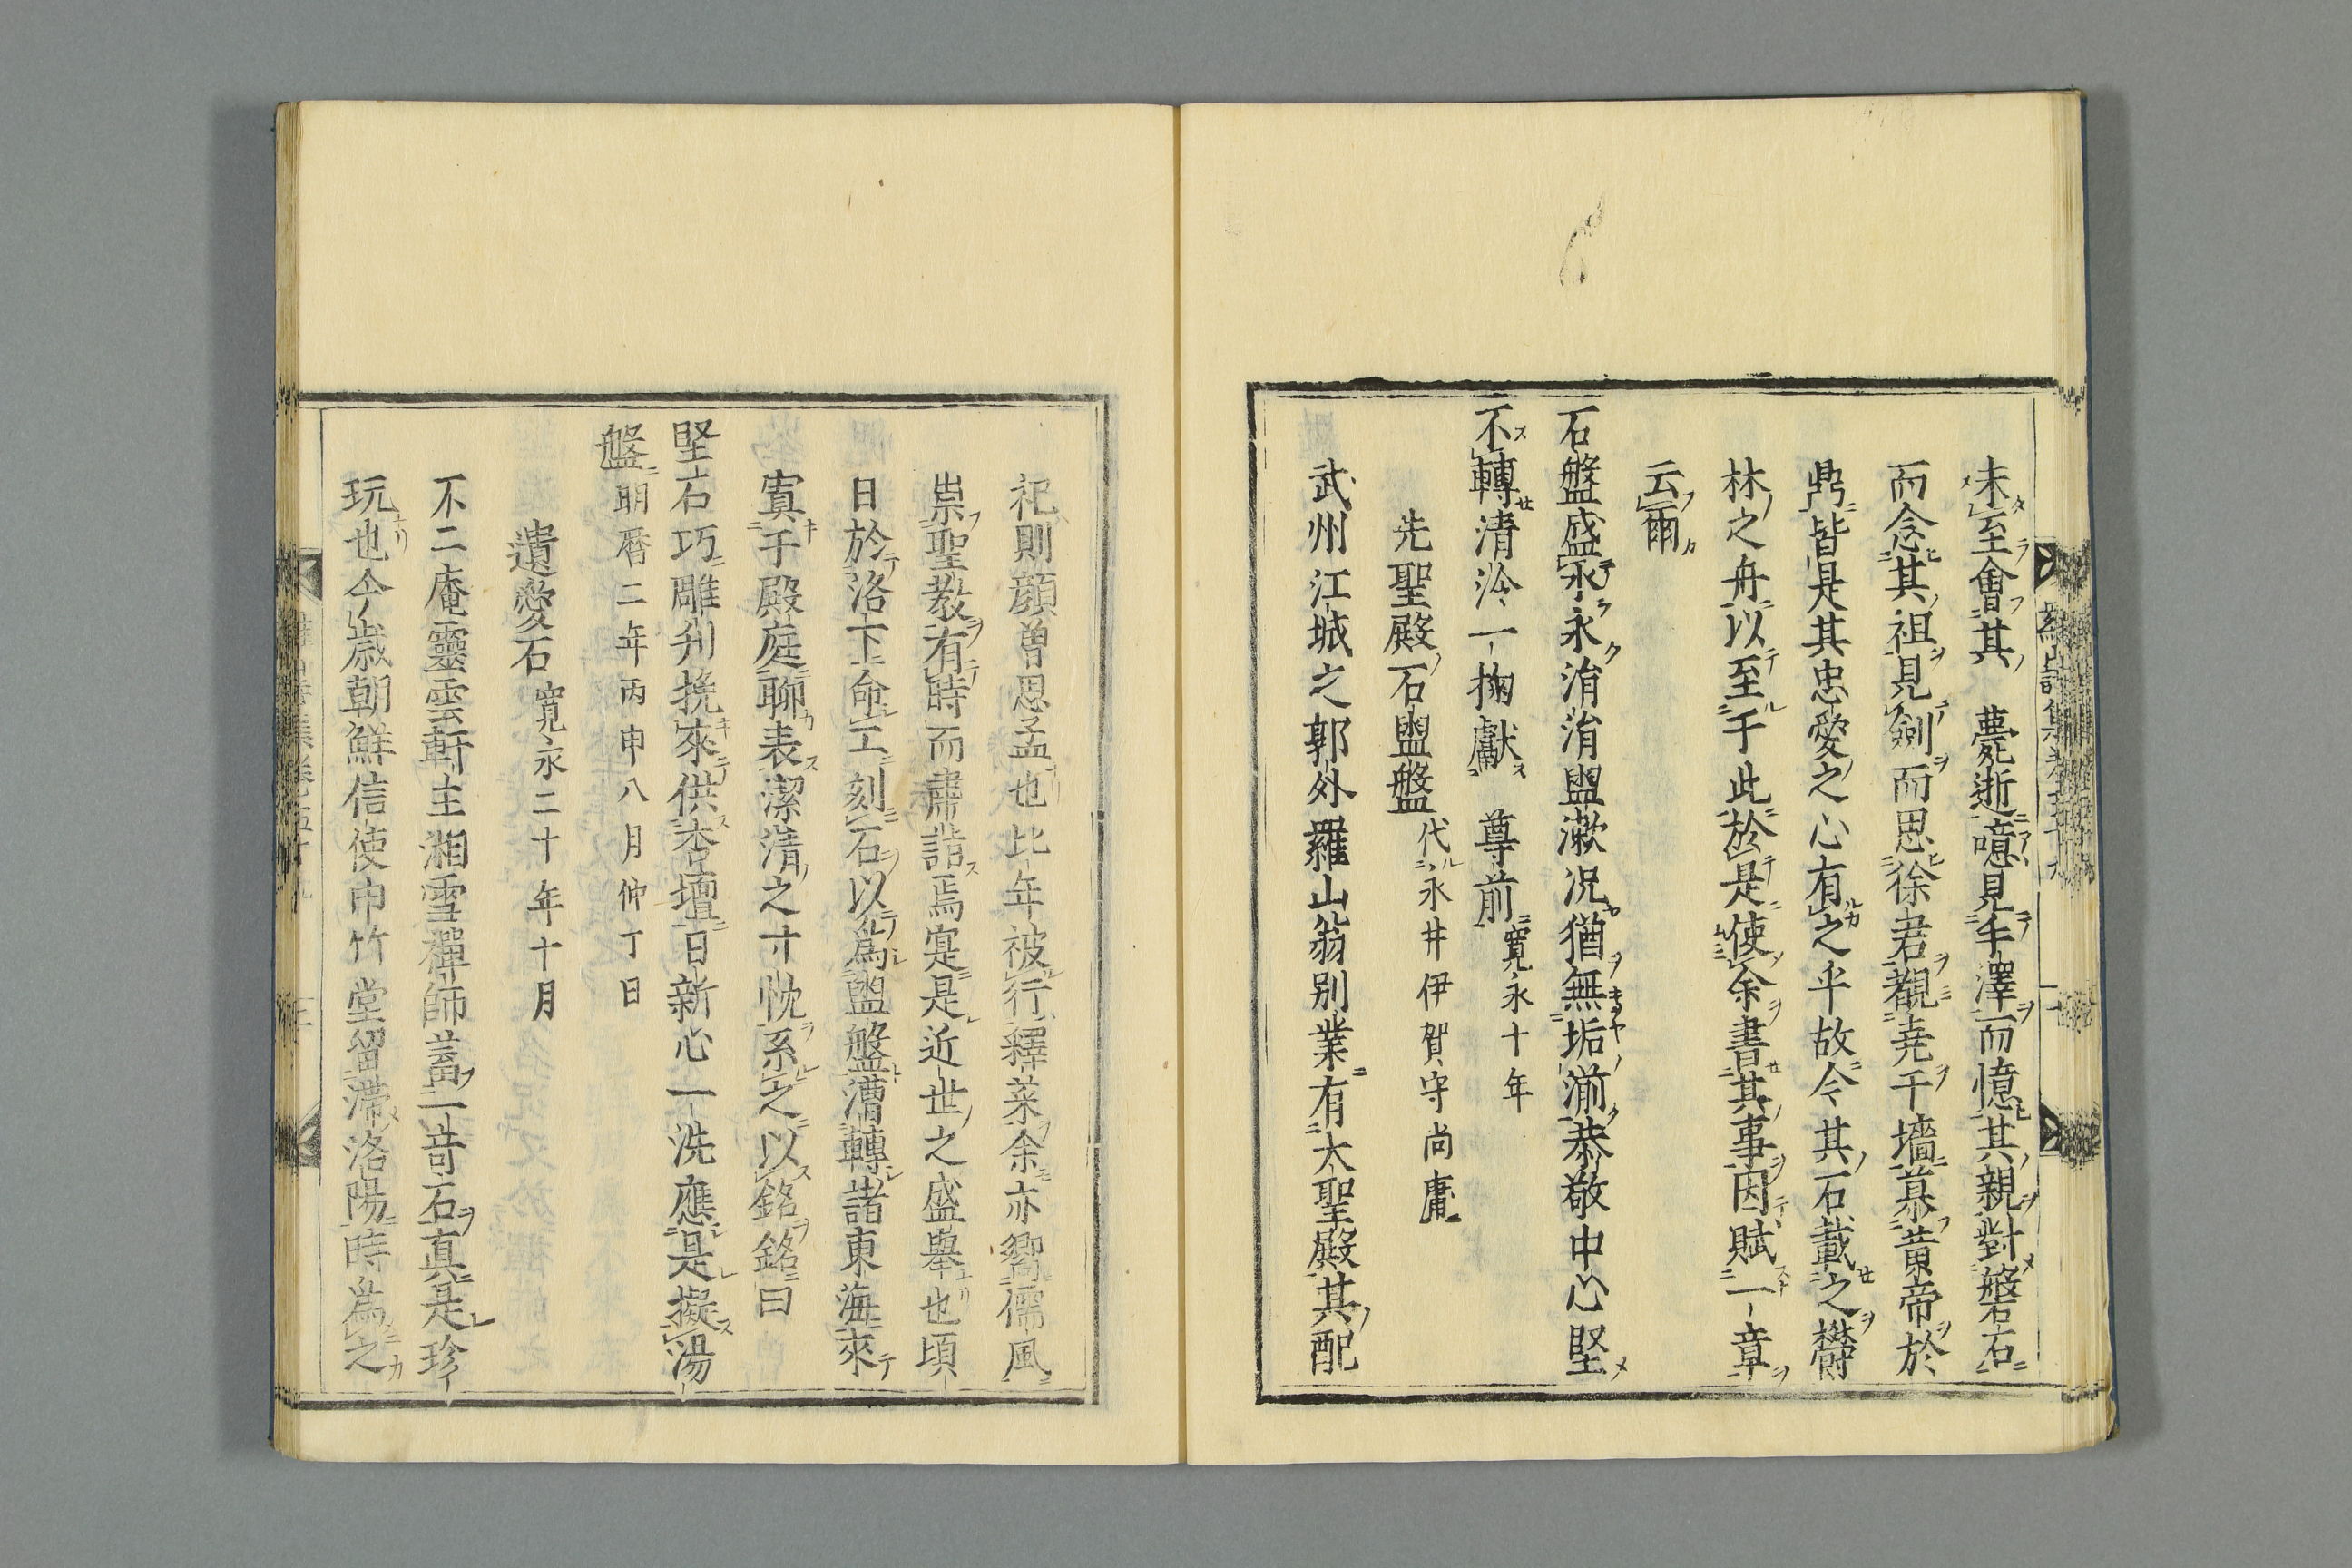 未至會其　薨逝噫見手澤而憶其親對盤石
而念其祖見劍而思徐君覩堯于墻慕黄帝於
鼎皆是其忠愛之心有之乎故今其石載之欝
林之舟以至于此於是使余書其事因賦一章
云爾
石盤盛永永淯淯盥漱况猶無垢湔恭敬中心堅
不轉清泠一掬獻　尊前寛永十年
先聖殿石盥盤代永井伊賀守尚庸
武州江城之郭外羅山翁别業有大聖殿其配
祀則顔曽思孟也比年被行釋菜余亦嚮儒風
崇聖教有時而肅詣焉寔是近世之盛擧也頃
日於洛下命工刻石以爲盥盤漕轉諸東海來
寘于殿庭聊表潔清之寸忱系之以銘銘曰
堅石巧雕刋挽來供杏壇日新心一洗應是擬湯
盤明暦二年丙申八月仲丁日
遺愛石寛永二十年十月
不二庵靈雲軒主湘雪禪師蓄一竒石真是珍
玩也今歳朝鮮信使申竹堂留滯洛陽時爲之